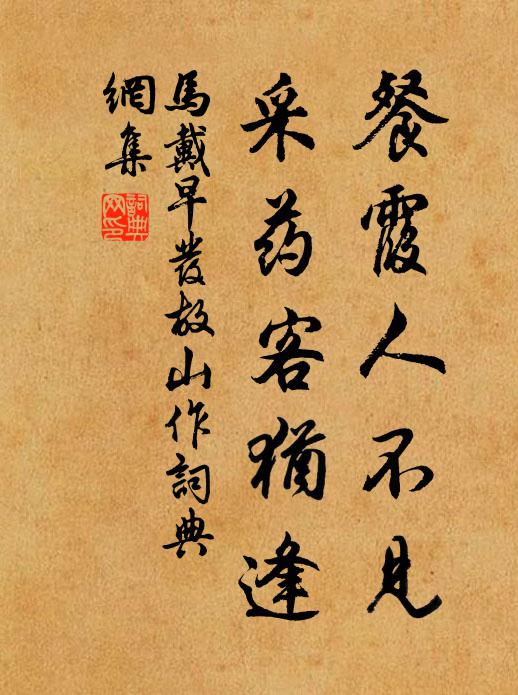 餐霞人不见
采药客猶逢
馬戴早發故山作詞典
網集
詞典
网印